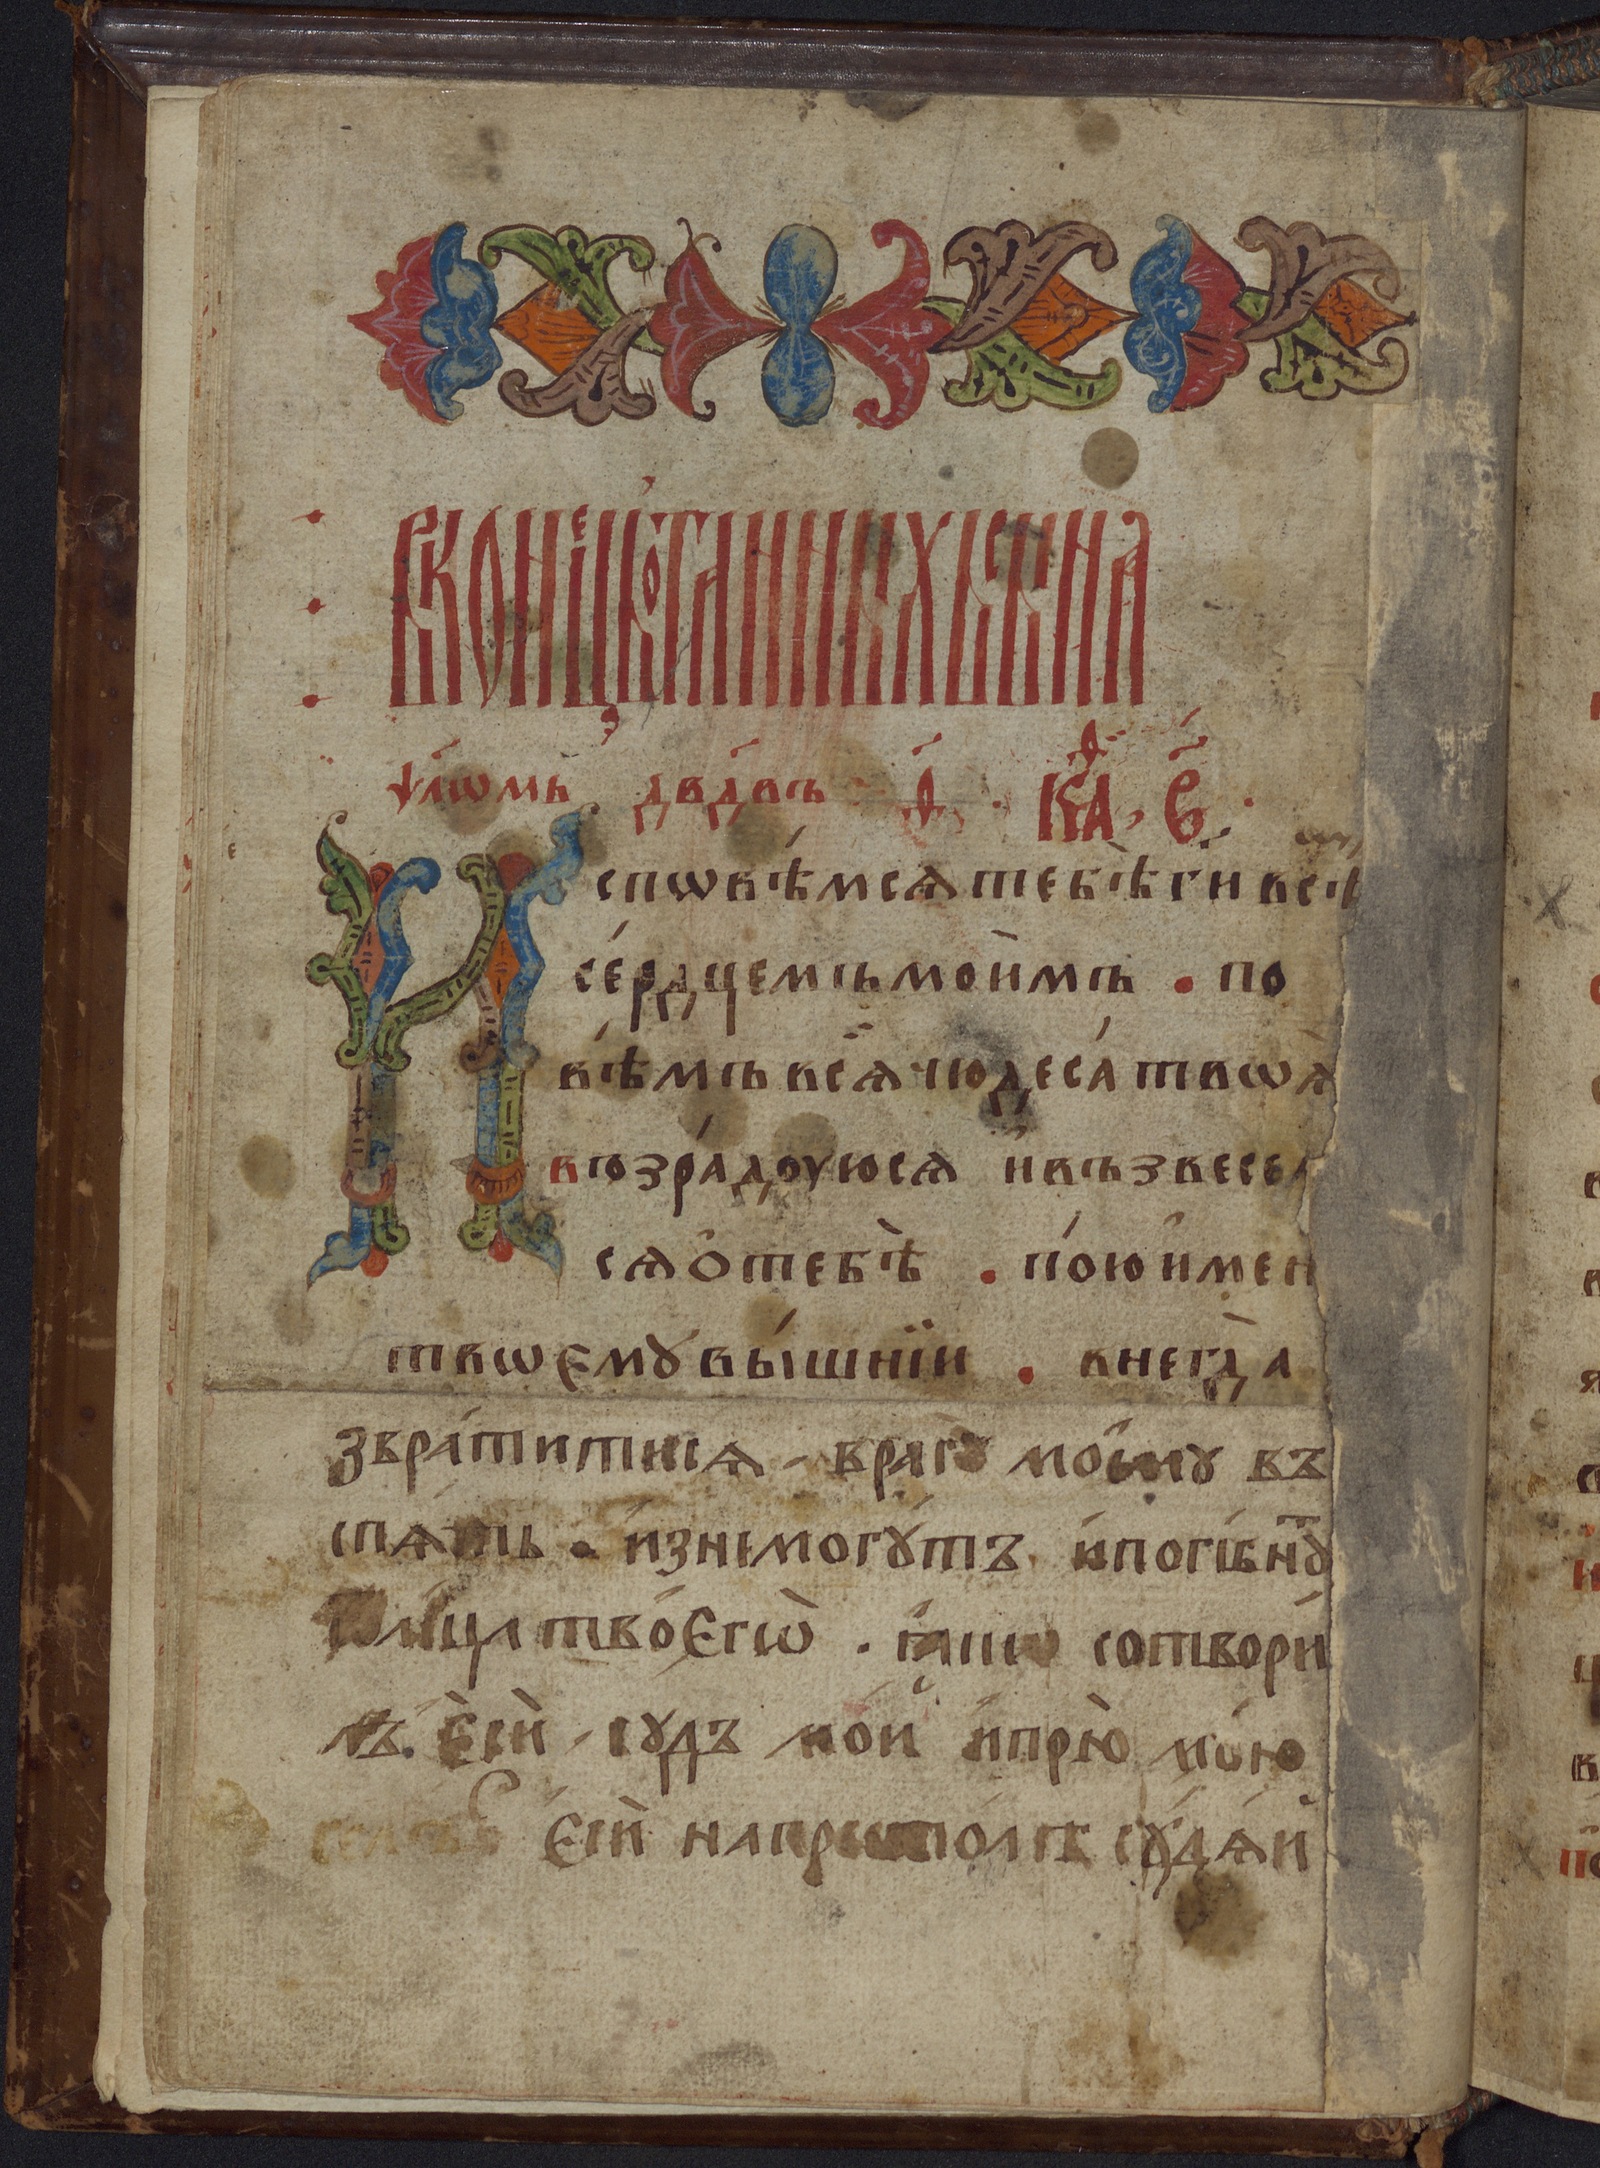 В конець ѿ таиныхъ сына
ѱалѡмь дв҃дѡвъ · ѳ҃ · каѳ · в҃ ·
Исповѣмсѧ тебѣ гн҃ всѣ
се́рдцемъ мои̇мъ · по
вѣмъ всѧ чюдеса́ твоѧ
възра́доуюсѧ и҆възвесел
сѧ ѻ҆тебѣ · пою̀ и҆мен
твѡємꙋ вы́шнїи · внегда
звра́титисѧ врагꙋ̀ мое́мꙋ въ
спѧ́ть · и҆знемогꙋ́тъ и҆погі́бнꙋт
лица̀ твоего̀ · ꙗ҆ко сотвори́
лъ є҆сѝ сꙋдъ мо́й и҆прю̀ мою̀
є҆сѝ на престо́лѣ сꙋдѧ́й